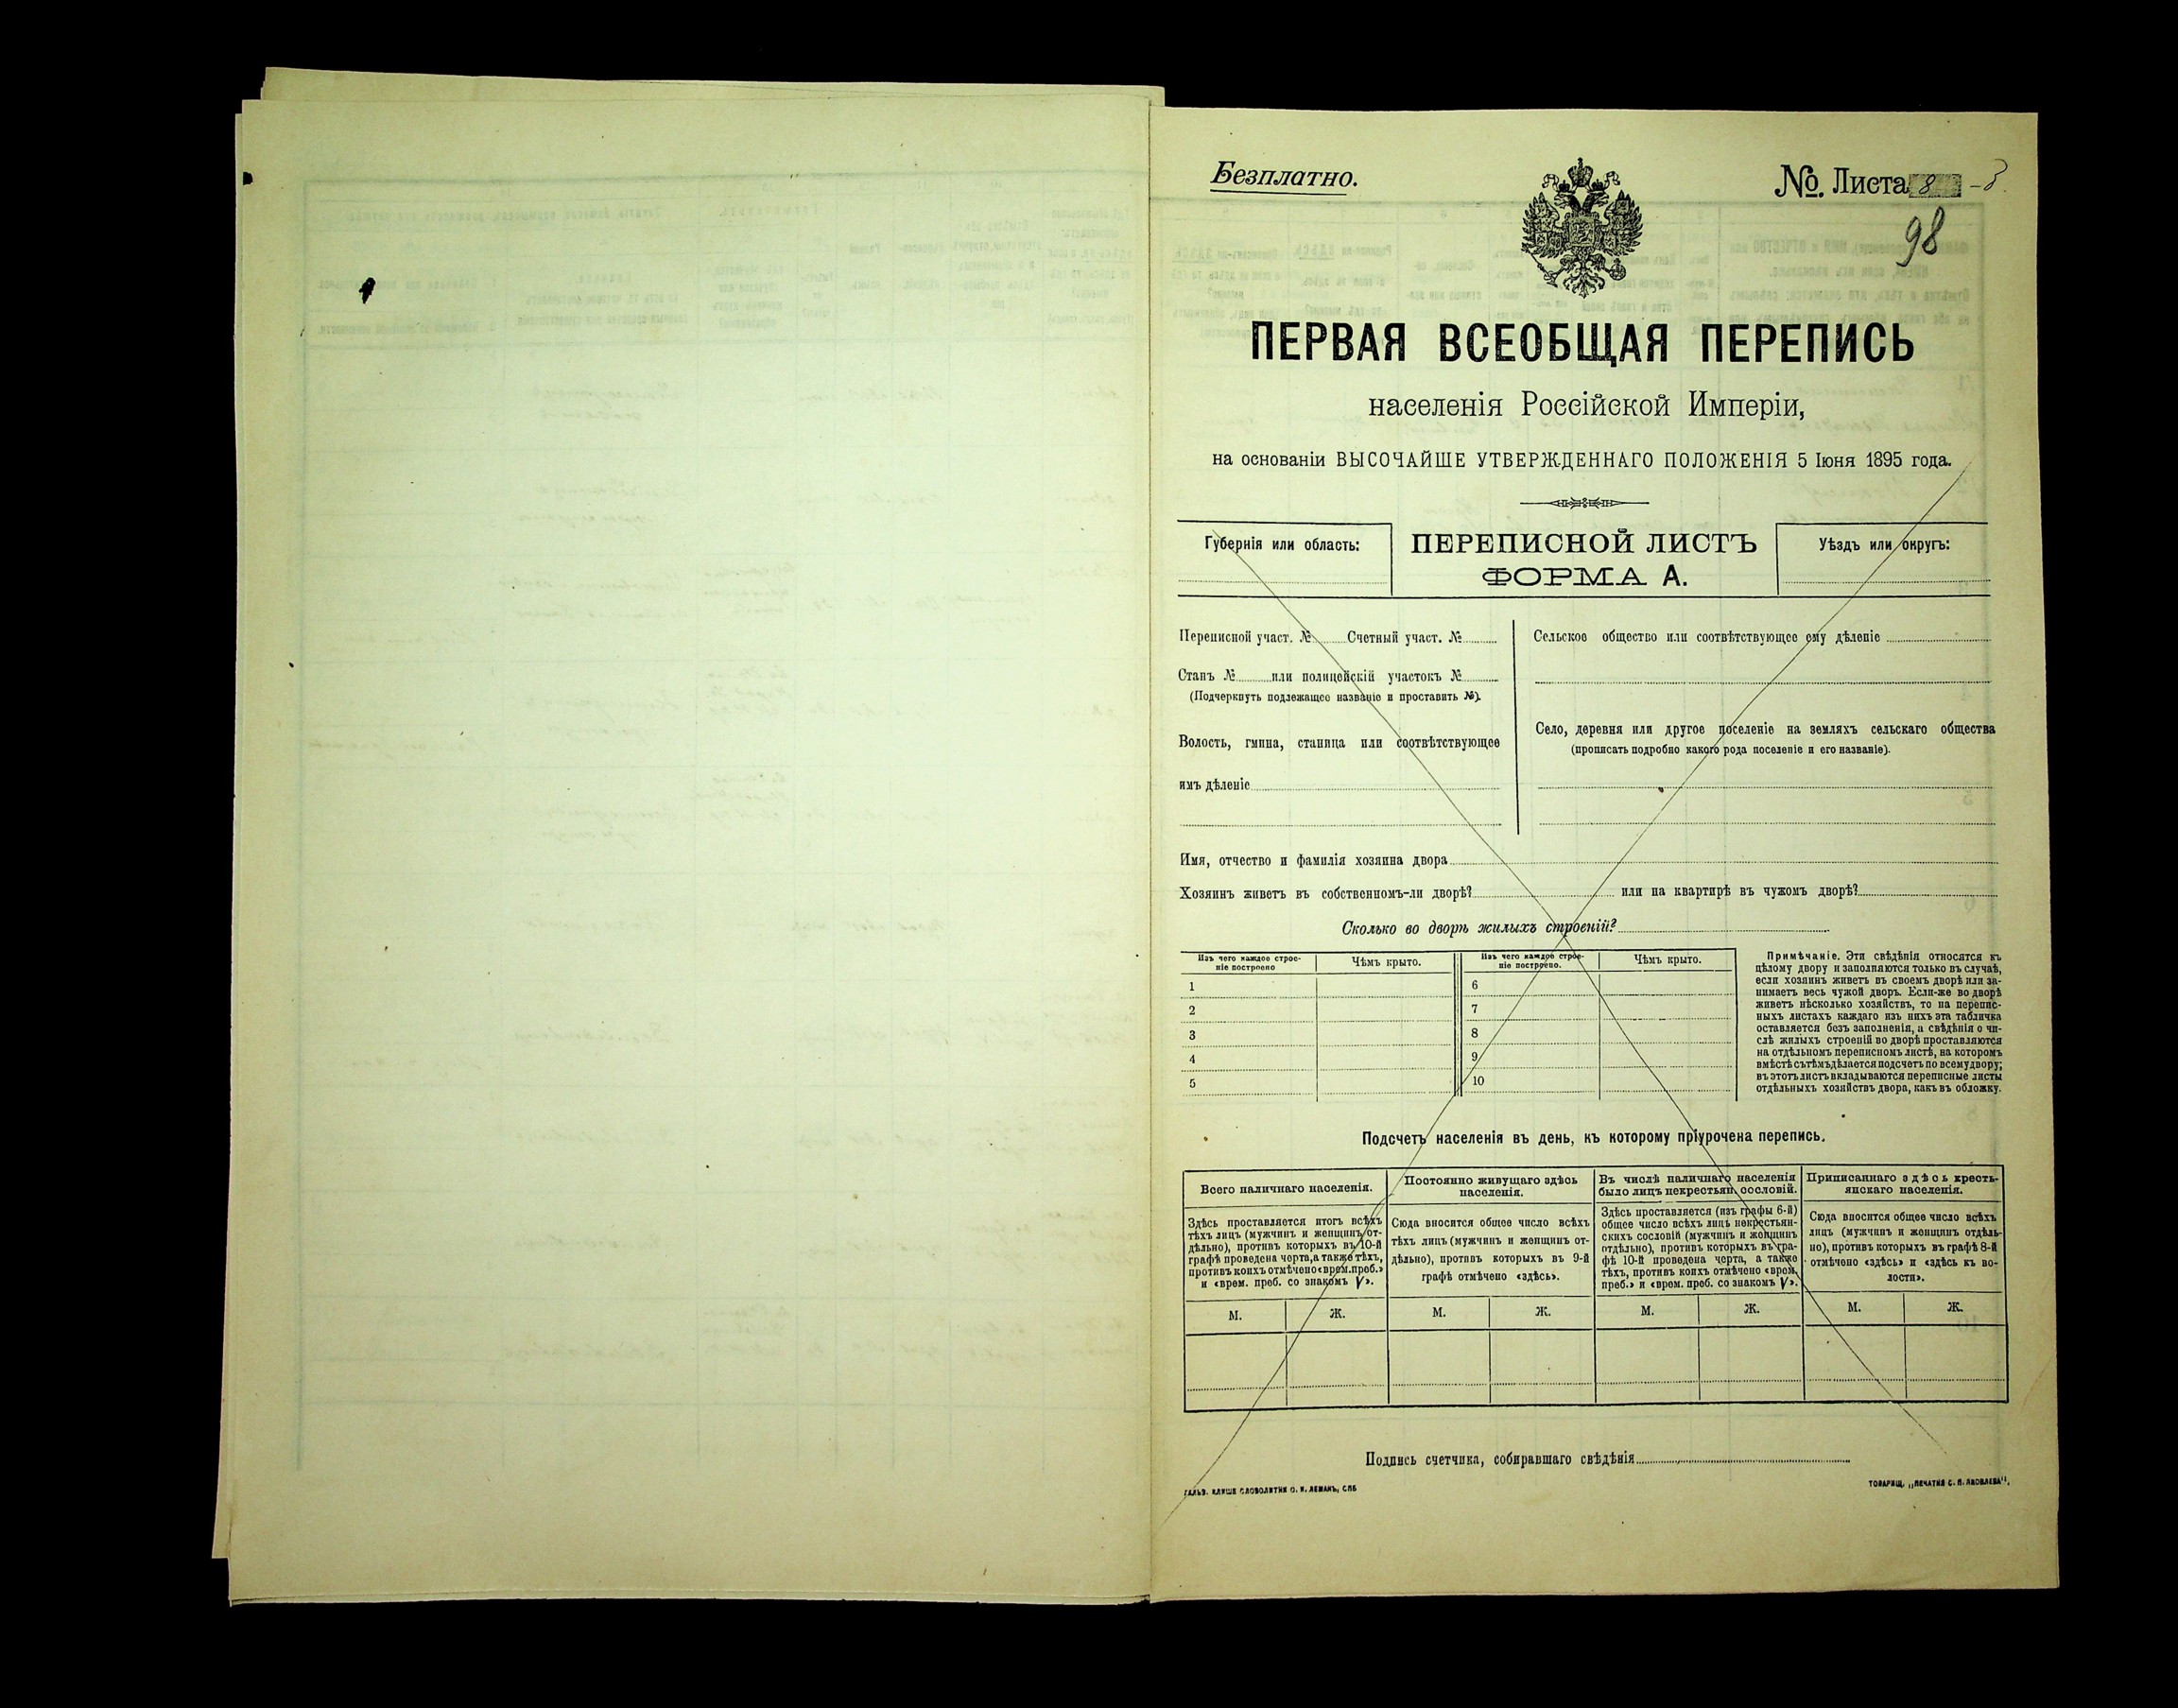 Безплатно.
№. Листа 8 - 3.
98
ПЕРВАЯ ВСЕОБЩАЯ ПЕРЕПИСЬ
населенія Россійской Имперіи,
на основаніи ВЫСОЧАЙШЕ УТВЕРЖДЕННАГО ПОЛОЖЕНІЯ 5 Іюня 1895 года.
Губернія или область:
ПЕРЕПИСНОЙ ЛИСТЪ
ФОРМА А.
Уѣздъ или округъ:
Переписной участ. № Счетный участ. №
Станъ № или полицейскій участокъ №
(Подчеркнуть подлежащее названіе и проставить №).
Волость, гмина, станица или соотвѣтствующее
имъ дѣленіе
Сельское общество или соотвѣтствующее ему дѣленіе
Село, деревня или другое поселеніе на земляхъ сельскаго общества
(прописать подробно какого рода поселеніе и его названіе).
Имя, отчество и фамилія хозяина двора
Хозяинъ живетъ въ собственномъ-ли дворѣ? или на квартирѣ въ чужомъ дворѣ?
Сколько во дворѣ жилыхъ строеній?
Изъ чего каждое строе-
ніе построено
Чѣмъ крыто.
1
2
3
4
5
Изъ чего каждое строе-
ніе построено.
Чѣмъ крыто.
6
7
8
9
10
Примѣчаніе. Эти свѣдѣнія относятся къ
цѣлому двору и заполняются только въ случаѣ,
если хозяинъ живетъ въ своемъ дворѣ или за-
нимаетъ весь чужой дворъ. Если-же во дворѣ
живетъ нѣсколько хозяйствъ, то на перепис-
ныхъ листахъ каждаго изъ нихъ эта табличка
оставляется безъ заполненія, а свѣдѣнія о чи-
слѣ жилыхъ строеній во дворѣ проставляются
на отдѣльномъ переписномъ листѣ, на которомъ
вмѣстѣ съ тѣмъ дѣлается подсчетъ по всему двору;
въ этотъ листъ вкладываются переписные листы
отдѣльныхъ хозяйствъ двора, какъ въ обложку.
Подсчетъ населенія въ день, къ которому пріурочена перепись.
Всего наличнаго населенія.
Здѣсь проставляется итогъ всѣхъ
тѣхъ лицъ (мужчинъ и женщинъ от-
дѣльно), противъ которыхъ въ 10-й
графѣ проведена черта, а также тѣхъ,
противъ коихъ отмѣчено «врем. преб.»
и «врем. преб. со знакомъ V».
М. Ж.
Постоянно живущаго здѣсь
населенія.
Сюда вносится общее число всѣхъ
тѣхъ лицъ (мужчинъ и женщинъ от-
дѣльно), противъ которыхъ въ 9-й
графѣ отмѣчено «здѣсь».
М. Ж.
Въ числѣ наличнаго населенія
было лицъ некрестьян. сословій.
Здѣсь проставляется (изъ графы 6-й)
общее число всѣхъ лицъ некрестьян-
скихъ сословій (мужчинъ и женщинъ
отдѣльно), противъ которыхъ въ гра-
фѣ 10-й проведена черта, а также
тѣхъ, противъ коихъ отмѣчено «врем.
преб.» и «врем. преб. со знакомъ V».
М. Ж.
Приписаннаго здѣсь кресть-
янскаго населенія.
Сюда вносится общее число всѣхъ
лицъ (мужчинъ и женщинъ отдѣль-
но), противъ которыхъ въ графѣ 8-й
отмѣчено «здѣсь» и «здѣсь къ во-
лости».
М. Ж.
Подпись счетчика, собиравшаго свѣдѣнія
ГАЛЬВ. КЛИШЕ СЛОВОЛИТНИ О. И. ЛЕМАНЪ, СПБ
ТОВАРИЩ. „ПЕЧАТНЯ С. П. ЯКОВЛЕВА",